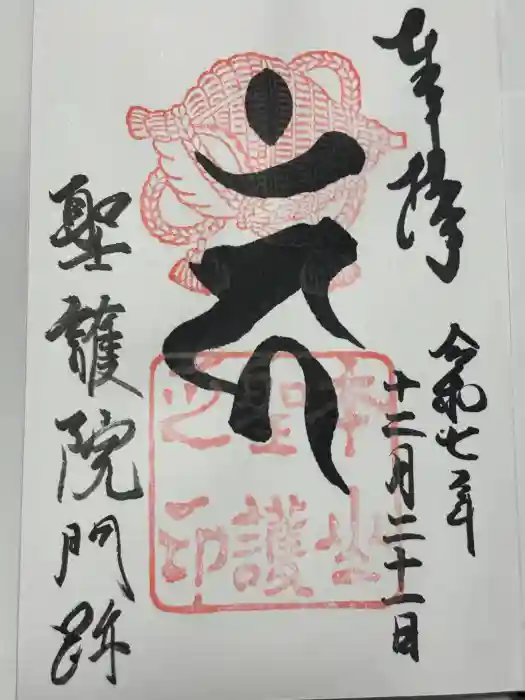 奉拝
令和七年
十二月二十一日
聖護院門跡
本山
聖護
之印